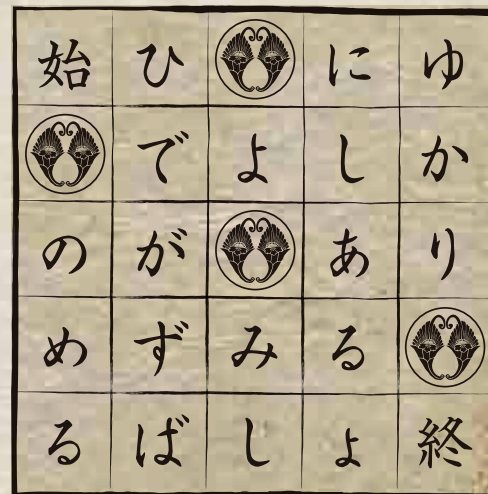 始 ひ に ゆ
で よ し か
の が あ り
め ず み る
る ば し ょ 終